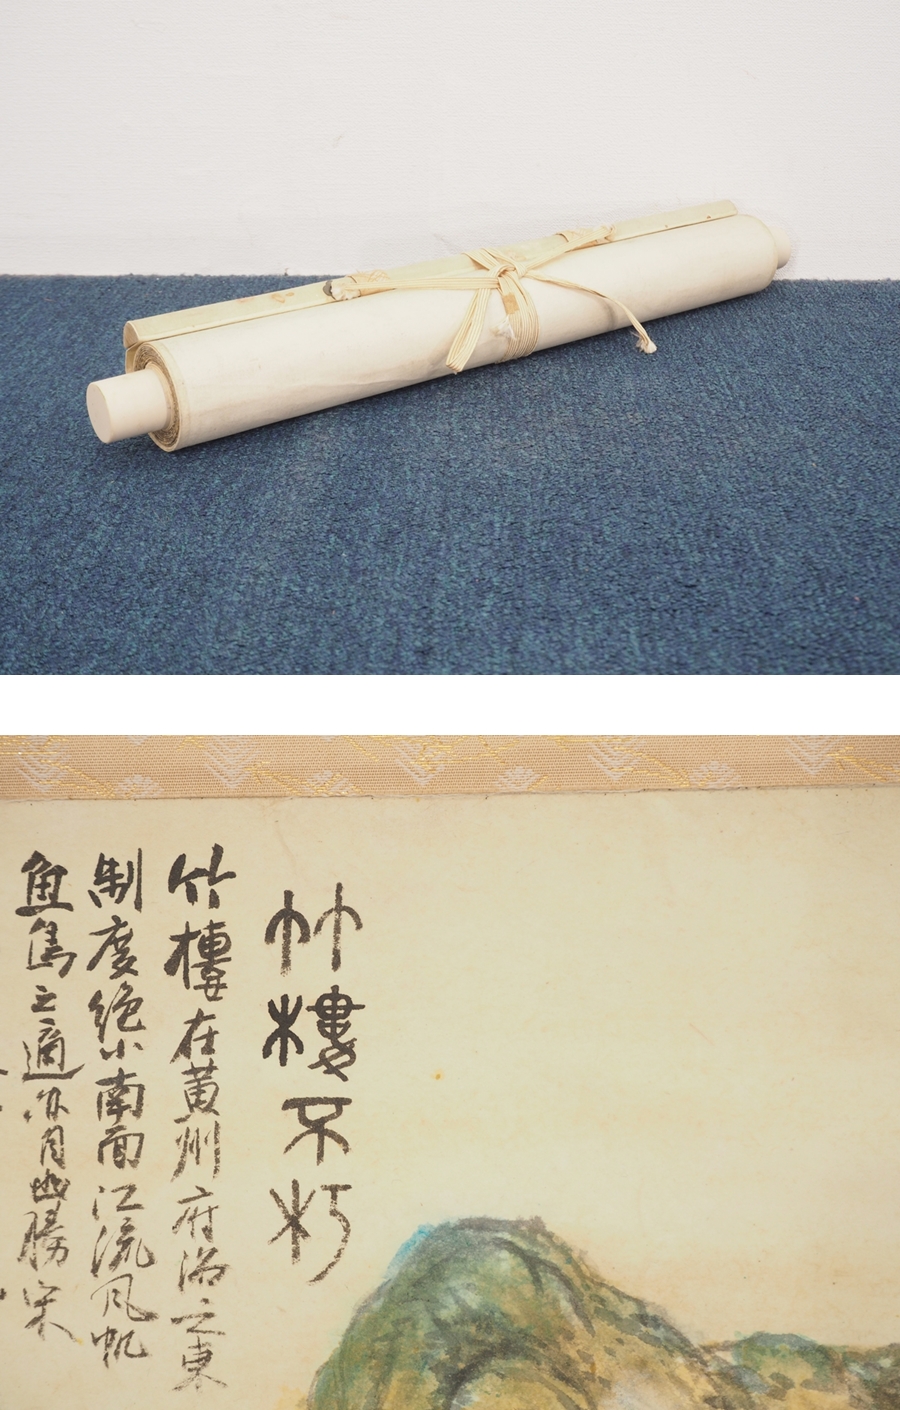 竹樓不朽
竹樓在黃州府治之東
制度絕小南面江流風帆
魚鳥之適亦有幽勝宋